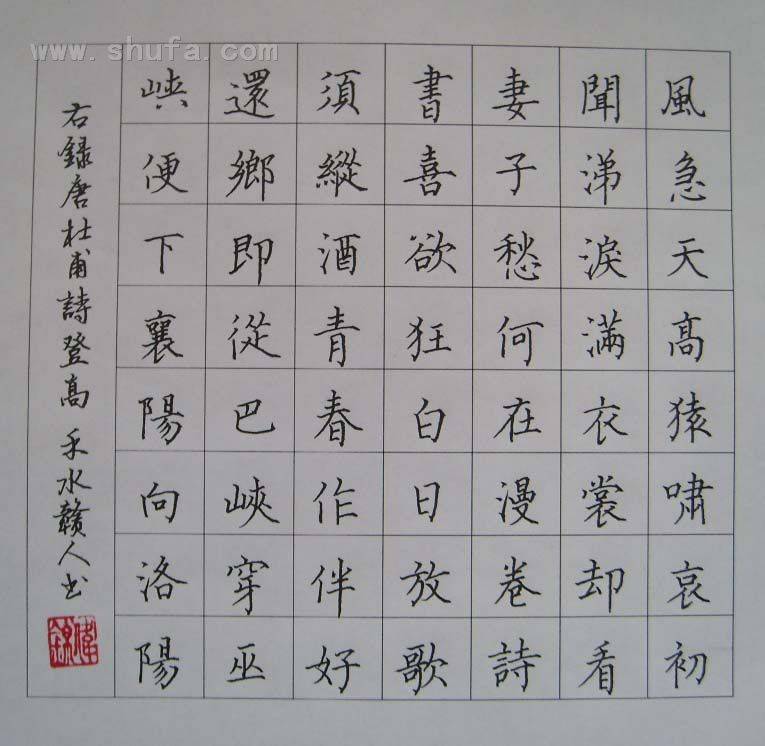 www.shufa.com
風急天高猿嘯哀初
聞涕淚滿衣裳却看
妻子愁何在漫卷詩
書喜欲狂白日放歌
須縱酒青春作伴好
還鄉即從巴峽穿巫
峽便下襄陽向洛陽
右録唐杜甫詩登高 禾水贛人书